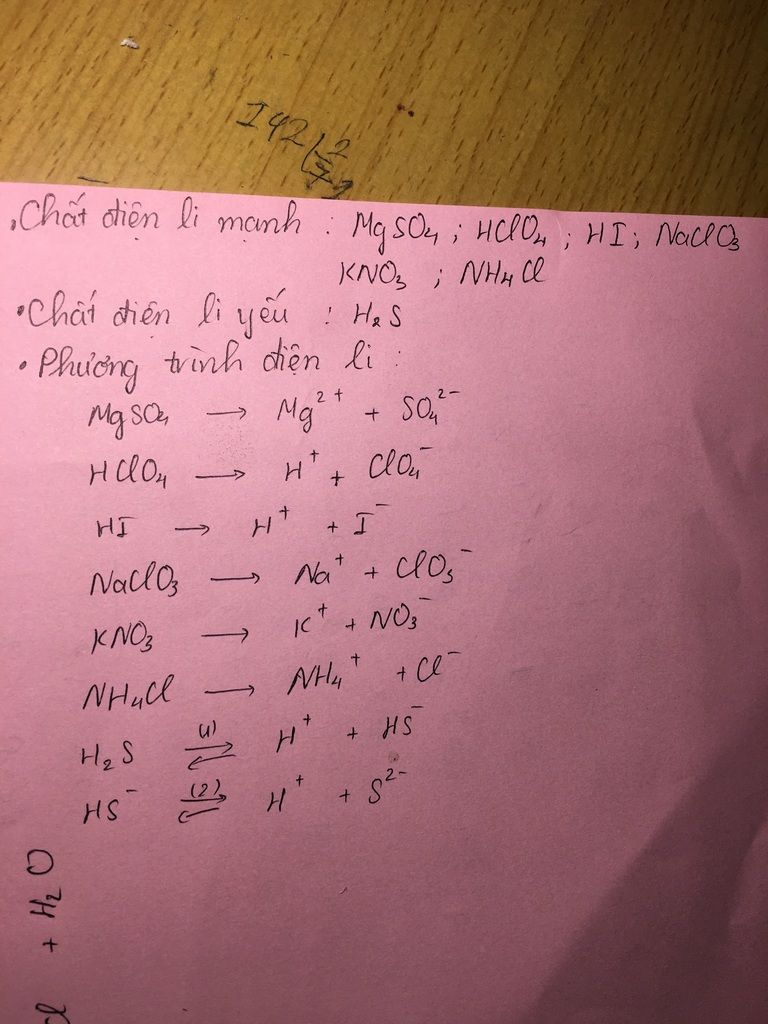 I42
• Chất điện li mạnh : MgSO₄ ; HClO₄ ; HI ; NaClO₃
KNO₃ ; NH₄Cl
• Chất điện li yếu : H₂S
• Phương trình điện li :
MgSO₄ → Mg²⁺ + SO₄²⁻
HClO₄ → H⁺ + ClO₄⁻
HI → H⁺ + I⁻
NaClO₃ → Na⁺ + ClO₃⁻
KNO₃ → K⁺ + NO₃⁻
NH₄Cl → NH₄⁺ + Cl⁻
H₂S ⇌ (1) H⁺ + HS⁻
HS⁻ ⇌ (2) H⁺ + S²⁻
+ H₂O